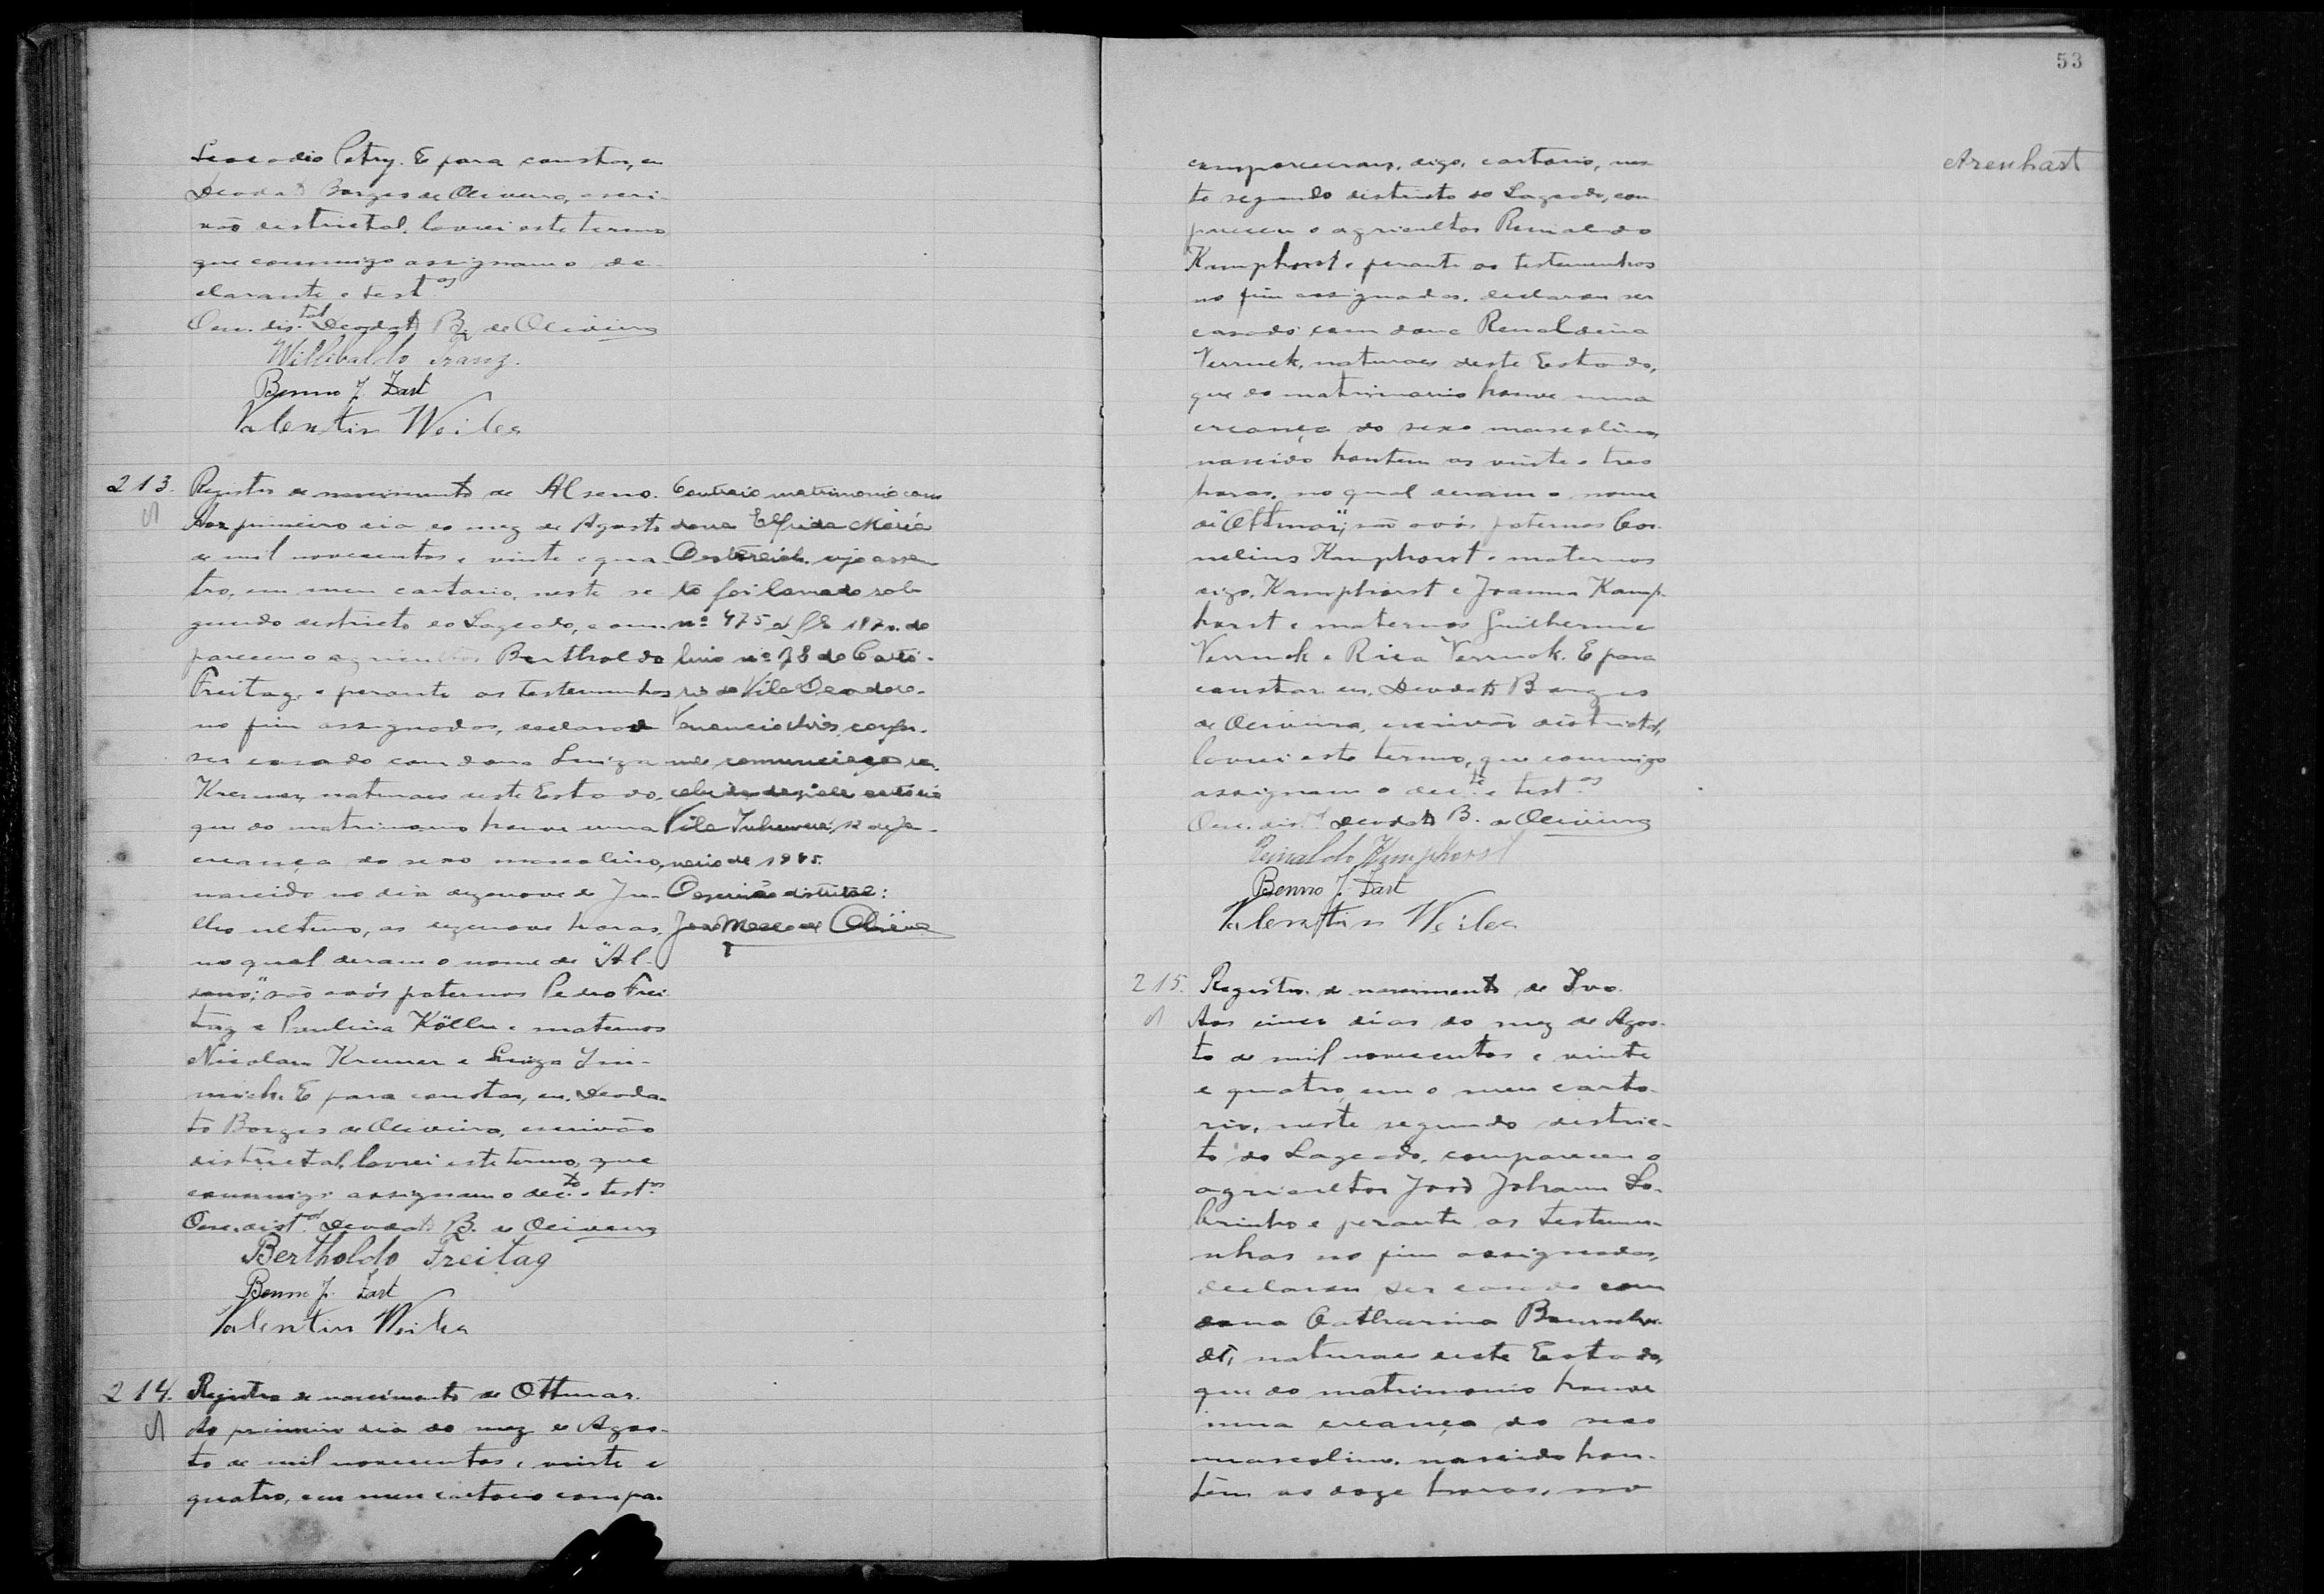 Petry. E para constar, eu
Deodato Borges de Oliveira, escri-
vão districtal, lavrei este termo
que commigo assignam o de-
clarante e test.as
O esc. dis.tal Deodato B. de Oliveira
Willibaldo Franz.
Benno J. Zart
Valentin Weiler
213. Registro de nascimento de Al
Ao primeiro dia do mez de Agosto
de mil novecentos e vinte e qua-
tro, em meu cartorio, neste se-
gundo districto do Lageado, com-
pareceu o agricultor Bertholdo
Freitag, e perante as testemunhas
no fim assignadas, declarou
ser casado com dona Luiza
Kremer, naturaes deste Estado,
que do matrimonio houve uma
creança do sexo masculino,
nascido no dia dezenove de Ju-
lho ultimo, as dezenove horas,
no qual deram o nome de "Al-
são avós paternos Pedro Frei-
tag e Paulina Köller e maternos
Nicolau Kremer e Luiza
E para constar, eu, Deoda-
to Borges de Oliveira, escrivão
districtal, lavrei este termo, que
commigo assignam o dec.te e test.as
O esc. dist.al Deodato B. de Oliveira
Bertholdo Freitag
Benno J. Zart
Valentin Weiler
Contraio matrimonio com
dona Elfrida Maria
cujo assen-
to foi lavrado sob
nº 475 a fls 187v. do
livro nº do Cartó-
rio de Vila Deodoro,
Venancio Aires, confor-
me comunicação re-
cebida deste cartório
Vila 12 de Ja-
neiro de 1945.
O escrivão distrital:
Oliveira
214. Registro de nascimento de Ottmar.
Ao primeiro dia do mez de Agos-
to de mil novecentos e vinte e
quatro, em meu cartorio compa-
53
Arenhart
compareceram, digo, cartorio, nes-
te segundo districto do Lageado, com-
pareceu o agricultor Reinaldo
Kamphorst e perante as testemunhas
no fim assignadas, declarou ser
casado com dona Renaldina
Verruck, naturaes deste Estado,
que do matrimonio houve uma
creança do sexo masculino,
nascido hontem as vinte e tres
horas, no qual deram o nome
de "Ottmar"; são avós paternos Cor-
nelius Kamphorst e maternos
digo, Kamphorst e Joanna Kamp-
horst e maternos Guilherme
Verruck e Rica Verruck. E para
constar eu, Deodato Borges
de Oliveira, escrivão districtal,
lavrei este termo, que commigo
assignam o dec.te e test.as
O esc. dis.tal Deodato B. de Oliveira
Reinaldo Kamphorst
Benno J. Zart
Valentin Weiler
215. Registro de nascimento de Ivo.
Aos cinco dias do mez de Agos-
to de mil novecentos e vinte
e quatro, em o meu carto-
rio, neste segundo distric-
to do Lageado, compareceu o
agricultor José Johann So-
brinho e perante as testemu-
nhas no fim assignadas,
declarou ser casado com
dona Catharina
naturaes deste Estado,
que do matrimonio houve
uma creança do sexo
masculino, nascido hon-
tem as doze horas, no